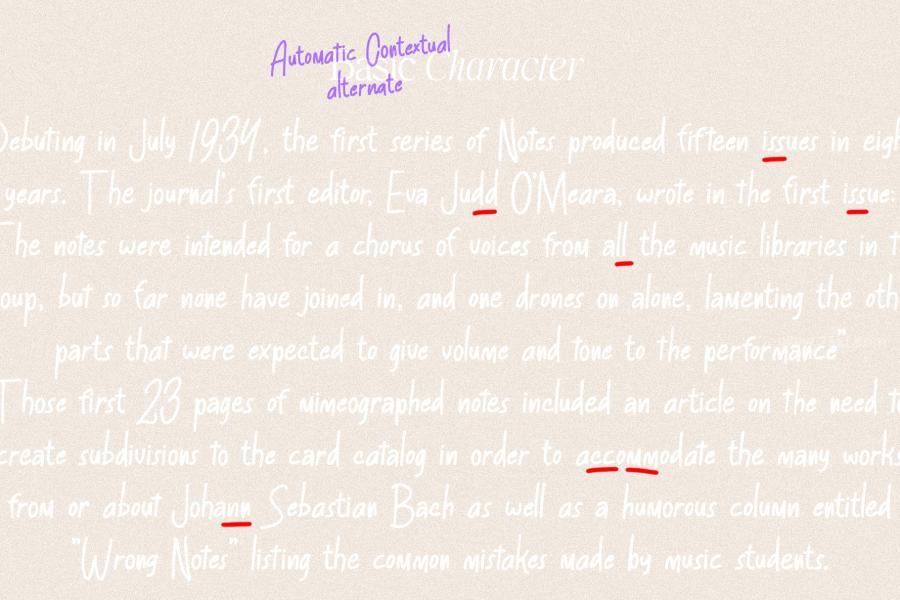 Automatic Contextual
alternate
Basic Character
Debuting in July 1934, the first series of Notes produced fifteen issues in eigh
years. The journal's first editor, Eva Judd O'Meara, wrote in the first issue:
The notes were intended for a chorus of voices from all the music libraries in t
oup, but so far none have joined in, and one drones on alone, lamenting the oth
parts that were expected to give volume and tone to the performance"
Those first 23 pages of mimeographed notes included an article on the need t
create subdivisions to the card catalog in order to accommodate the many works
from or about Johann Sebastian Bach as well as a humorous column entitled
"Wrong Notes" listing the common mistakes made by music students.